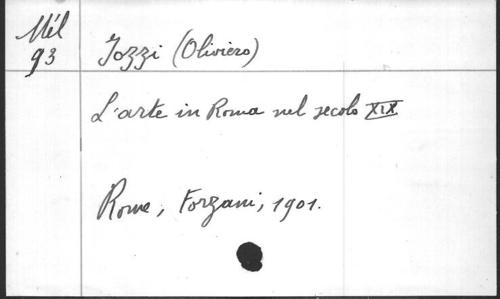 Mél
93
Jozzi (Oliviero)
L'arte in Roma nel secolo XIX
Rome, Forzani, 1901.